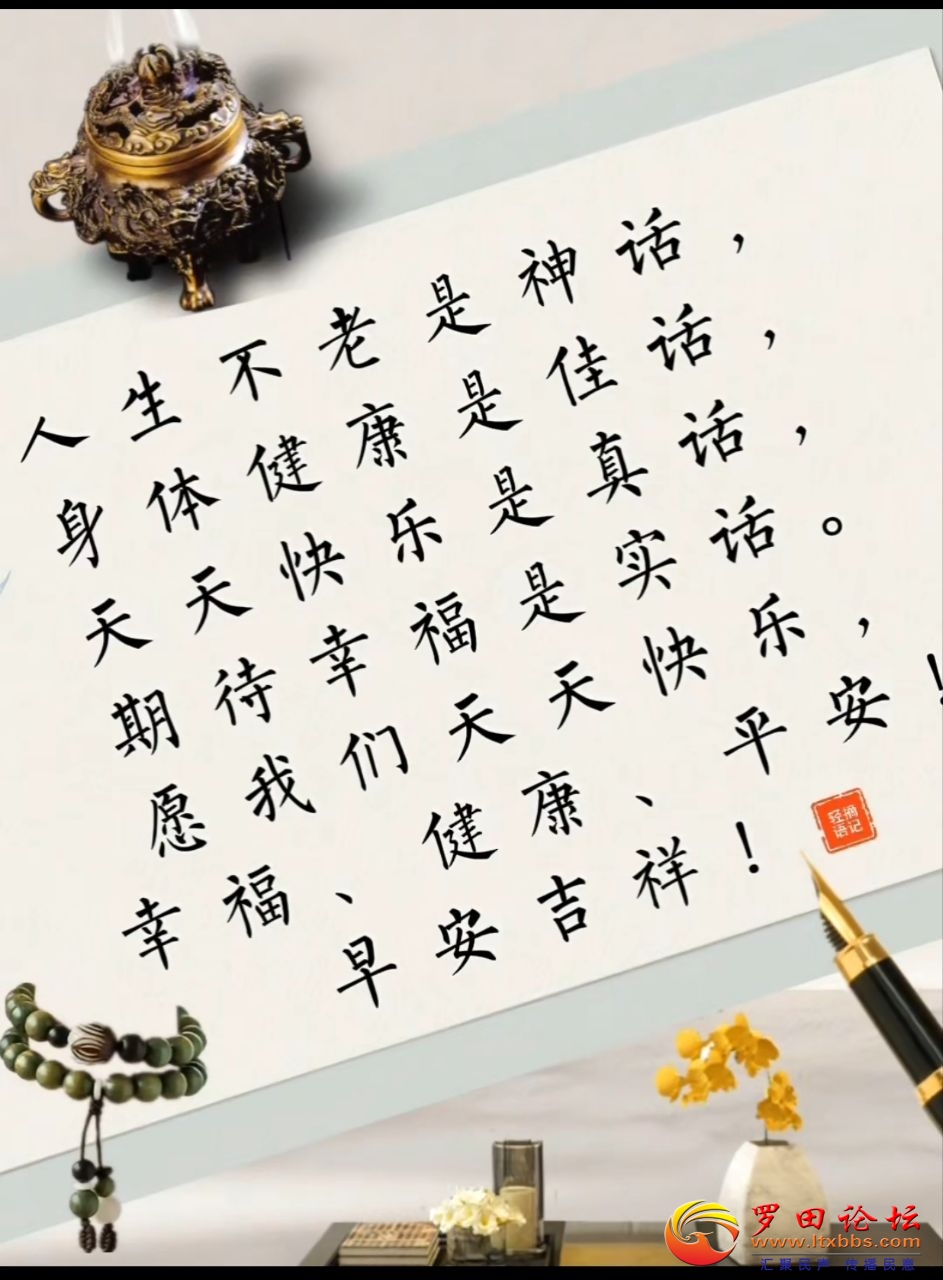 人生不老是神话，
身体健康是佳话，
天天快乐是真话，
期待幸福是实话。
愿我们天天快乐，
幸福、健康、平安！
早安吉祥！
轻摘
语记
罗田论坛
www.ltxbbs.com
汇聚民声 传播民意